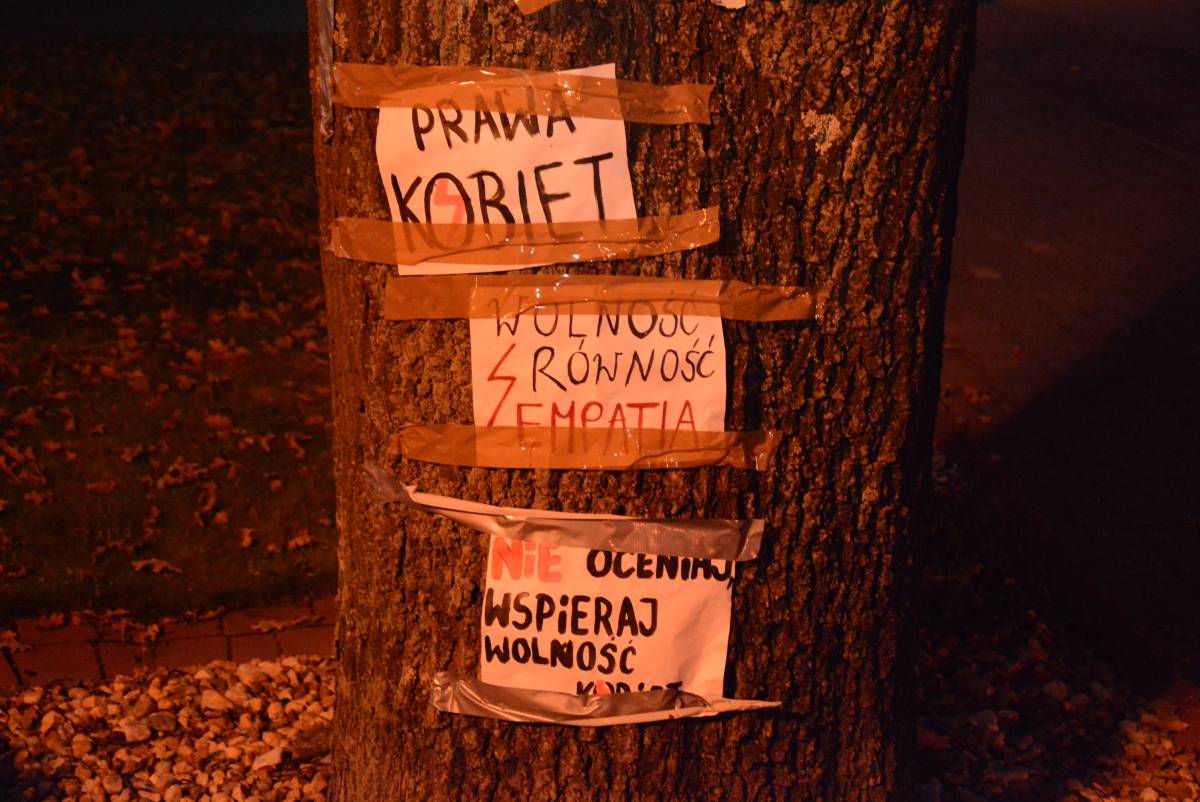 PRAWA
KOBIET
WOLNOŚĆ
RÓWNOŚĆ
EMPATIA
NiE OCENIAJ,
WSPiERAJ
WOLNOŚĆ
KOBIET